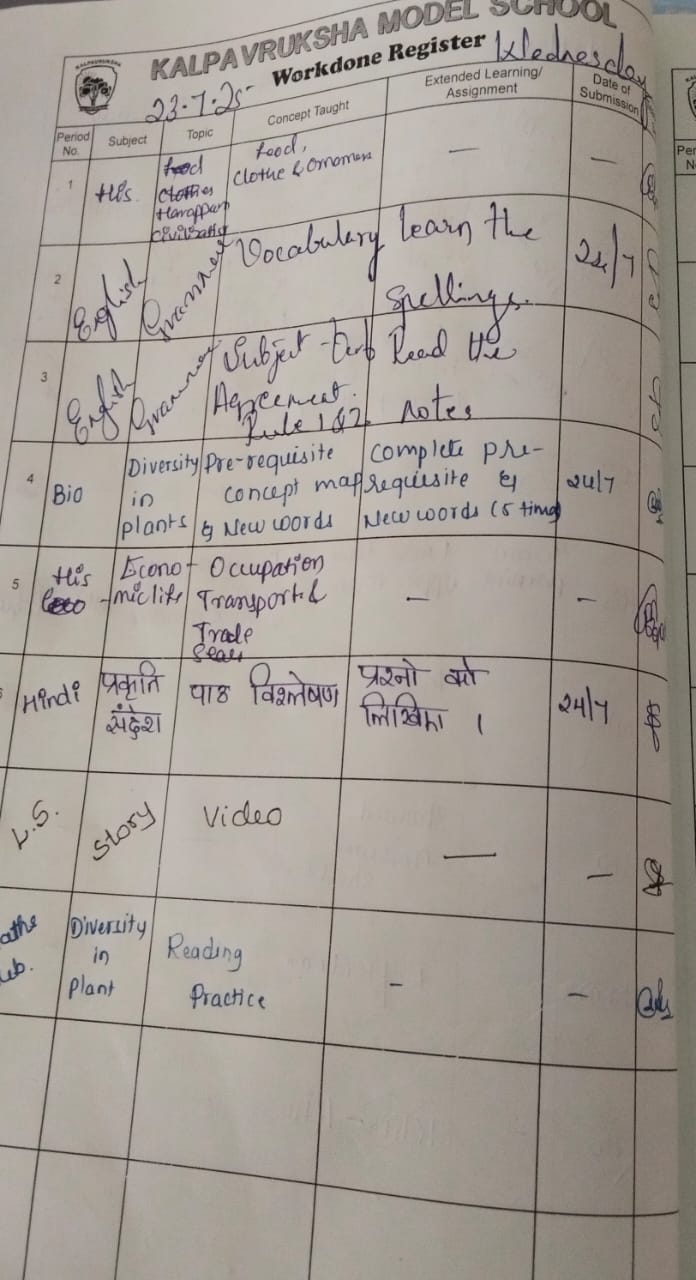 KALPAVRUKSHA MODEL SCHOOL
Workdone Register
Wednesday
23-7-25
Period No.
Subject
Topic
Concept Taught
Extended Learning/
Assignment
Date of
Submission
1
His
Food
Clothes
Harappan
Food,
Clothe & Ornamens
—
—
2
English
Grammer
Vocabulary
learn the
spellings.
24/7
3
English
Grammer
Subject -
Agreement.
Rule 1 & 2.
Read the
notes
4
Bio
Diversity
in
plants
Pre-requisite
concept map
& New words
Complete pre-
requisite &
New words (5 time)
24/7
5
His
Econo-
-mic life
Occupation
Transport &
Trade
Seals
–
–
Hindi
प्रकृति
संदेश
पाठ विश्लेषण
प्रश्नो को
लिखिए ।
24/7
L.S.
Story
Video
—
–
Diversity
in
Plant
Reading
Practice
-
–